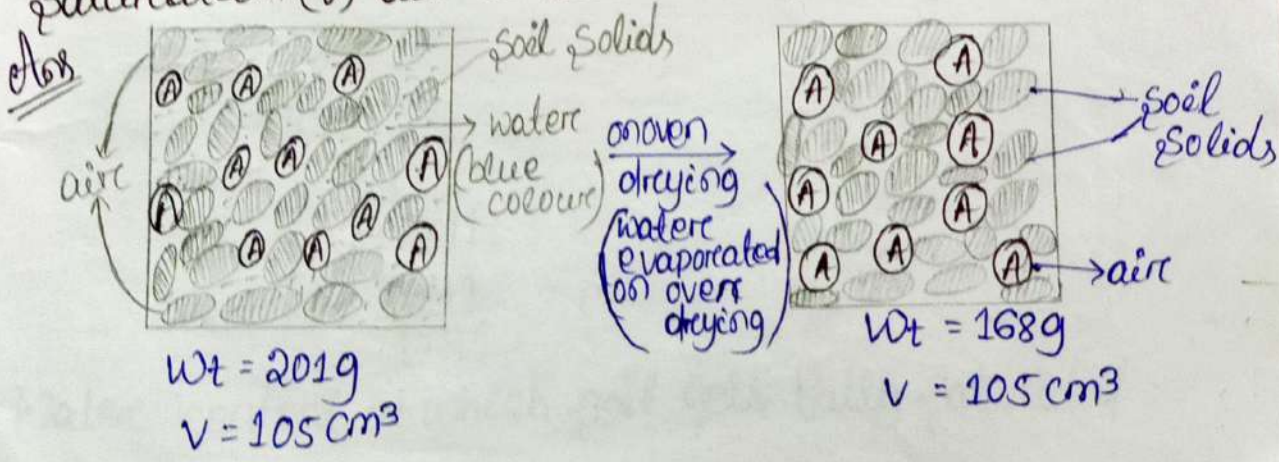 Ans
soil solids
air
A A A A A A A A A A A
water
(blue
colour)
on oven
drying
(water
evaporated
on oven
drying)
Wt = 201g
V = 105 cm³
A A A A A A A A A
soil
solids
air
Wt = 168g
V = 105 cm³